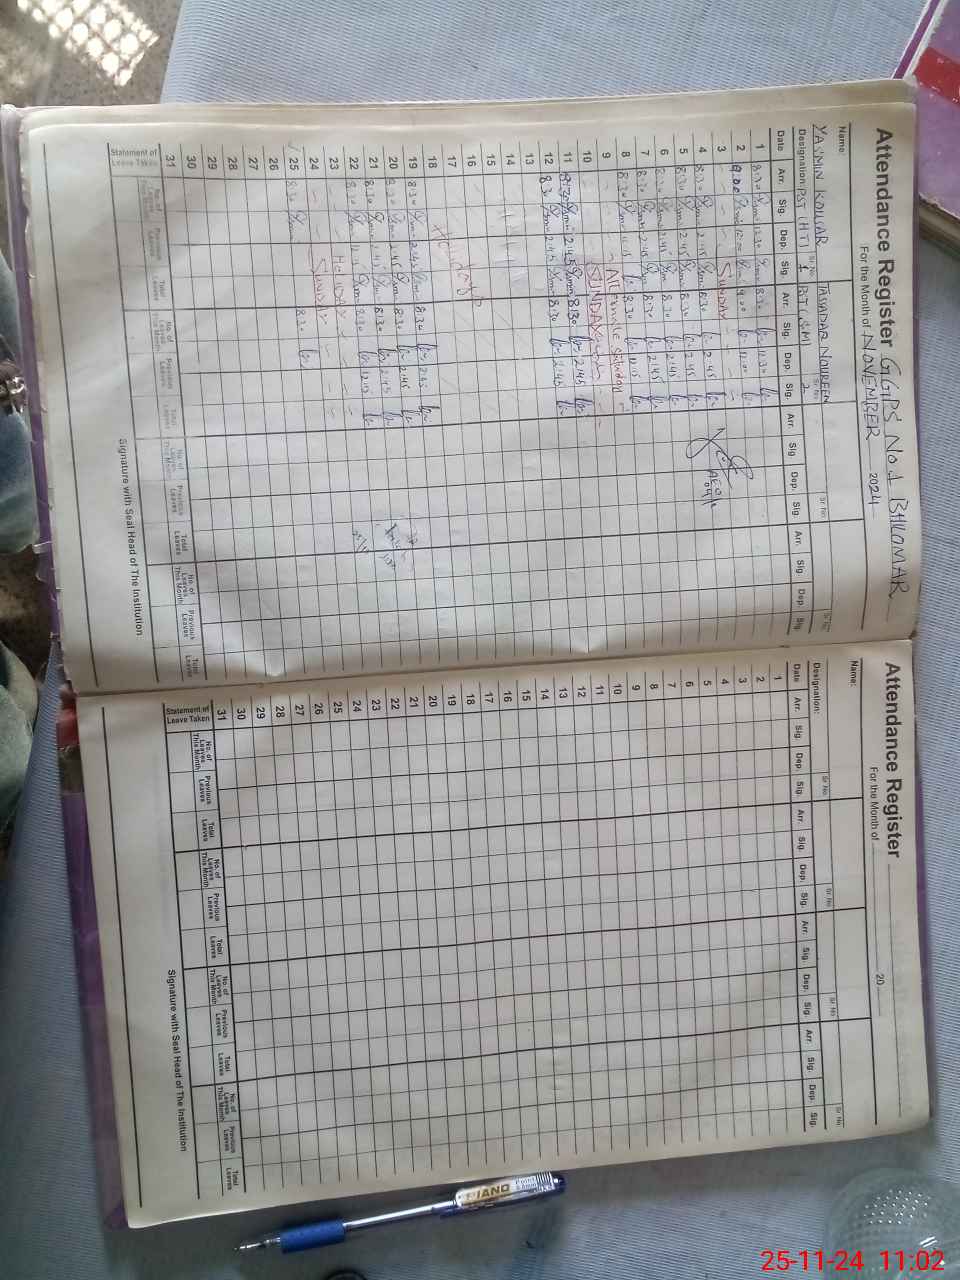 Attendance Register GGPS No.1 BHUOMAR
For the Month of NOVEMBER 2024
Name: YASMIN KOUSAR TASADAR NOUREEN
Designation: PST (HT) Sr No 1 PST (SM) Sr No 2 Sr No Sr No
Date Arr. Sig. Dep. Sig. Arr. Sig. Dep. Sig. Arr. Sig. Dep. Sig. Arr. Sig. Dep. Sig.
1 8:30 12:30 8:30 12:30
2 9:00 12:00 9:00 12:00
3 SUNDAY
4 8:30 2:45 8:30 2:45
5 8:30 2:45 8:30 2:45
6 8:30 2:45 8:30 2:45
7 8:30 2:45 8:30 2:45
8 8:30 12:15 8:30 12:15
9 Alternate Saturday
10 SUNDAY
11 8:30 2:45 8:30 2:45
12 8:30 2:45 8:30 2:45
13
14
15
16
17
18
19 8:30 2:45 8:30 2:45
20 8:30 2:45 8:30 2:45
21 8:30 2:45 8:30
22 8:30 12:15 8:30 12:15
23 Holiday
24 SUNDAY
25 8:30 8:30
26
27
28
29
30
31
Statement of Leave Taken No. of Leaves This Month Previous Leaves Total Leaves No. of Leaves This Month Previous Leaves Total Leaves No. of Leaves This Month Previous Leaves Total Leaves No. of Leaves This Month Previous Leaves Total Leaves
Signature with Seal Head of The Institution
Attendance Register
For the Month of 20
Name:
Designation: Sr No Sr No Sr No Sr No
Date Arr. Sig. Dep. Sig. Arr. Sig. Dep. Sig. Arr. Sig. Dep. Sig. Arr. Sig. Dep. Sig.
1
2
3
4
5
6
7
8
9
10
11
12
13
14
15
16
17
18
19
20
21
22
23
24
25
26
27
28
29
30
31
Statement of Leave Taken No. of Leaves This Month Previous Leaves Total Leaves No. of Leaves This Month Previous Leaves Total Leaves No. of Leaves This Month Previous Leaves Total Leaves No. of Leaves This Month Previous Leaves Total Leaves
Signature with Seal Head of The Institution
PIANO
25-11-24 11:02